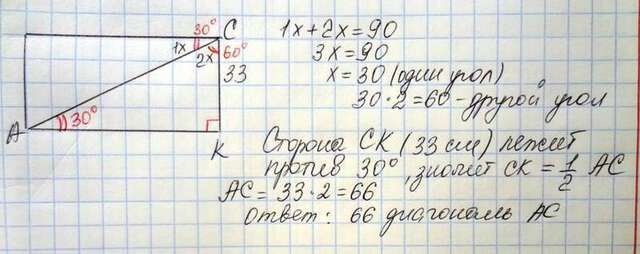 30° C
1x
2x 60°
33
A 30°
K
1x+2x=90
3x=90
x=30 (один угол)
30·2=60-другой угол
Сторона CK (33 см) лежит
против 30°, значит CK = 1/2 AC
AC = 33·2=66
Ответ: 66 диагональ AC